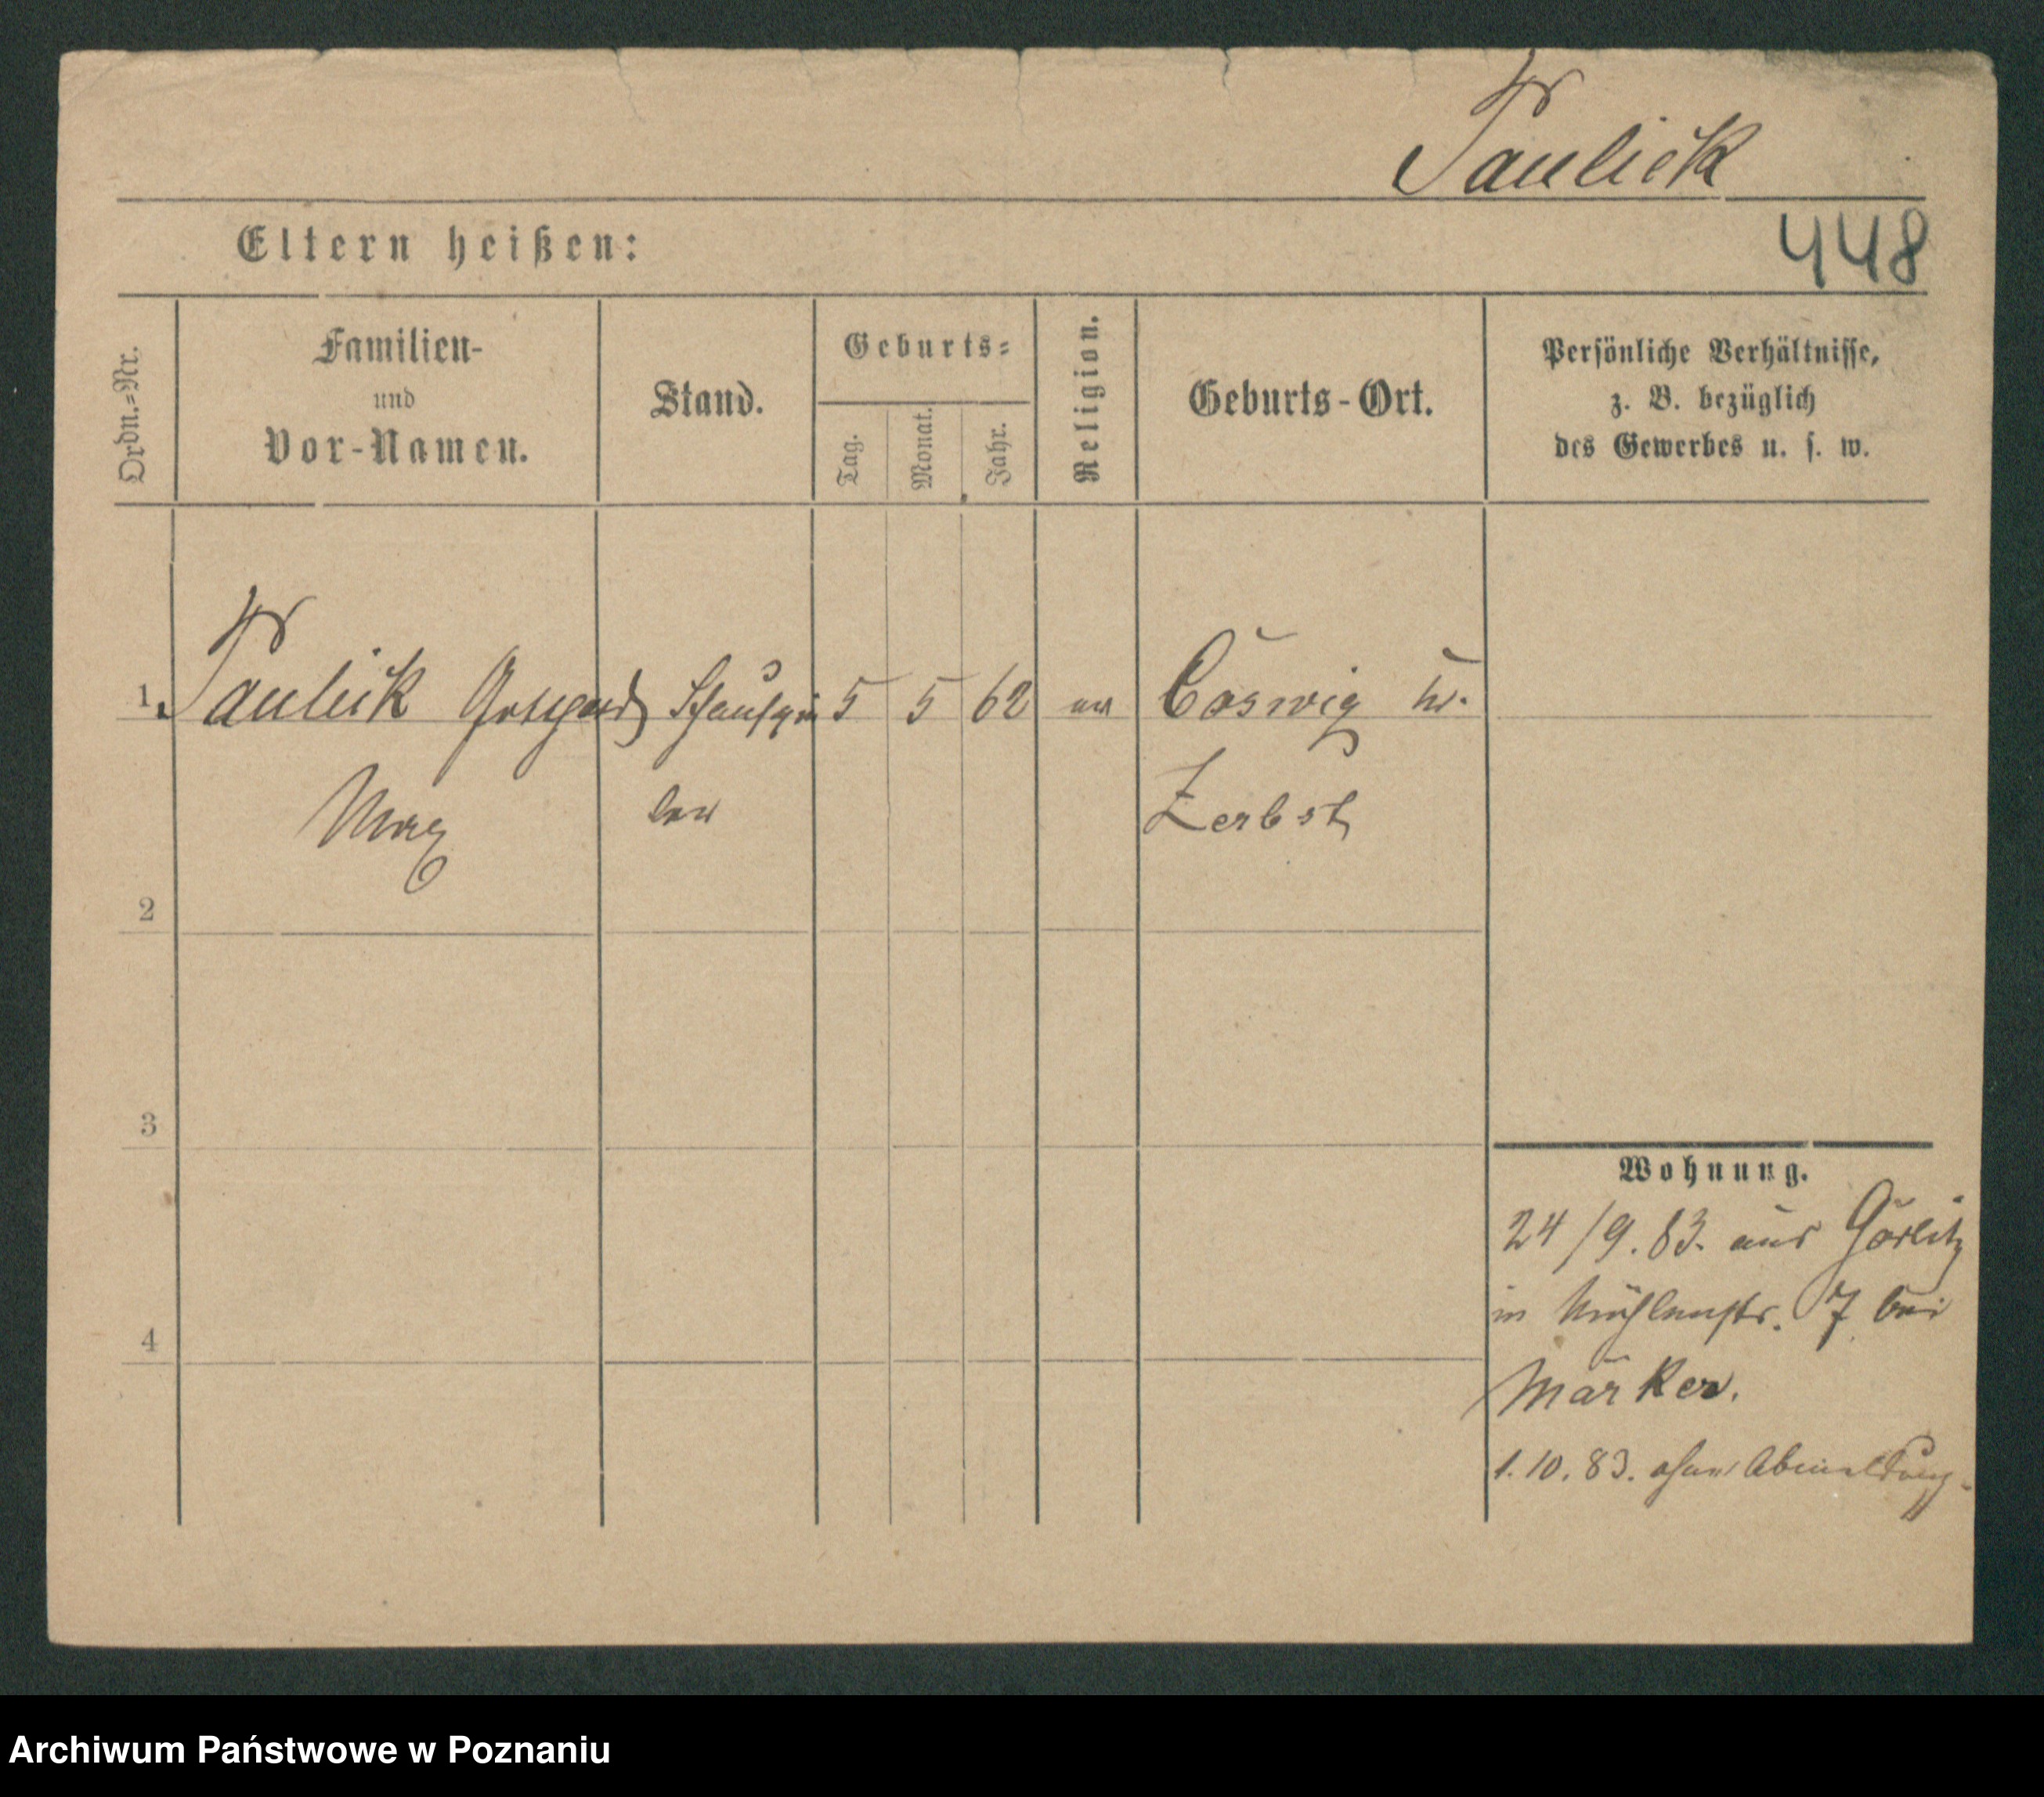 Paulick
Eltern heißen:
448
Ordn.=Nr.
Familien-
und
Vor-Namen.
Stand.
Geburts=
Tag.
Monat.
Jahr.
Religion.
Geburts-Ort.
Persönliche Verhältnisse,
z. B. bezüglich
des Gewerbes u. s. w.
1. Paulick Schauspie 5 5 62 Coswig
Max ler Zerbst
2
3
4
Wohnung.
24/9.83. aus Görlitz
in Mühlenstr. 7 bei
Märker.
1.10.83. ohne Abmeldung.
Archiwum Państwowe w Poznaniu